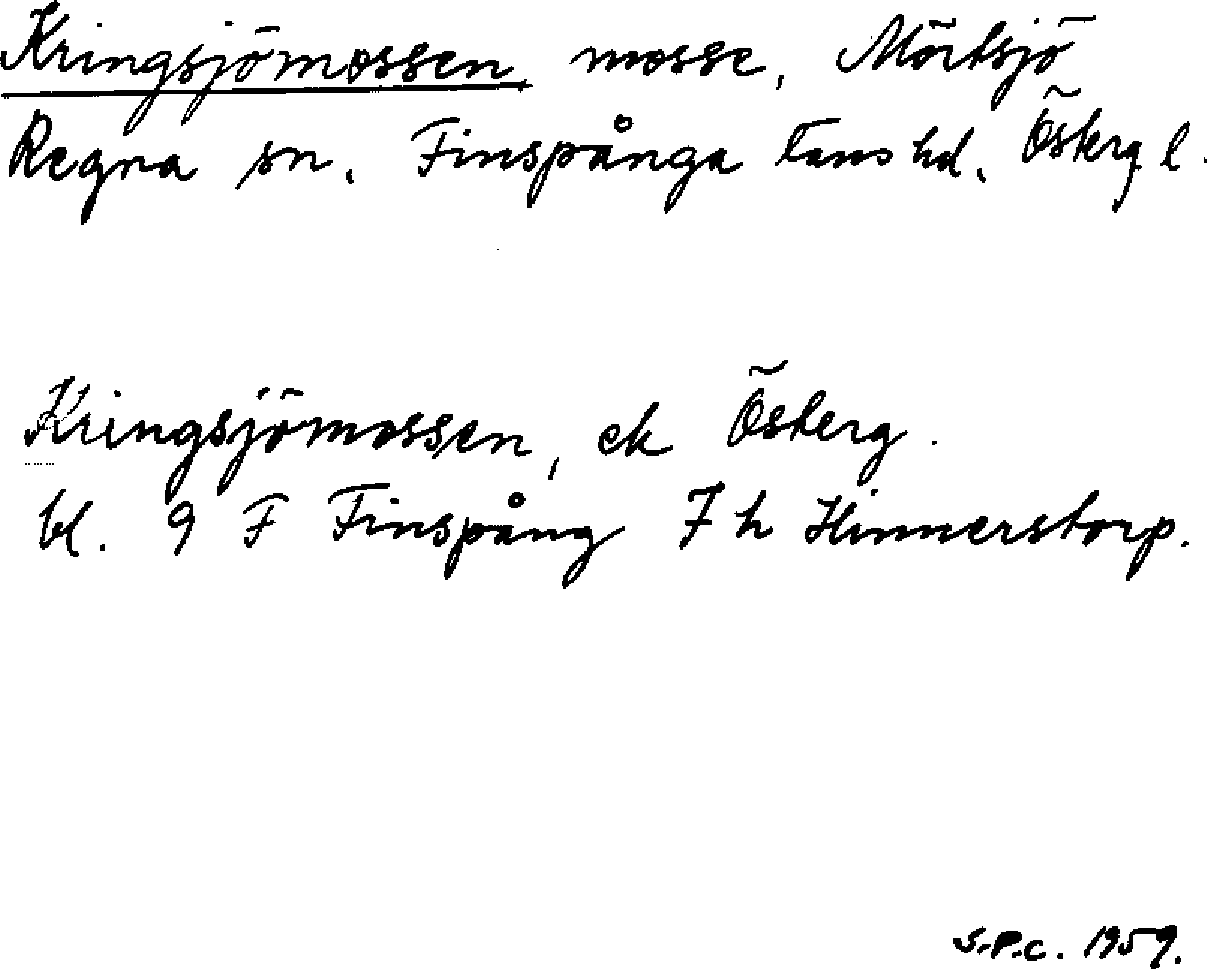 Kringsjömossen mosse, Mörtsjö
Regna sn. Finspånga läns hd. Österg. l.
Kringsjömossen, ek Österg.
bl. 9 F Finspång 7 h Hinnerstorp.
S.P.C. 1959.